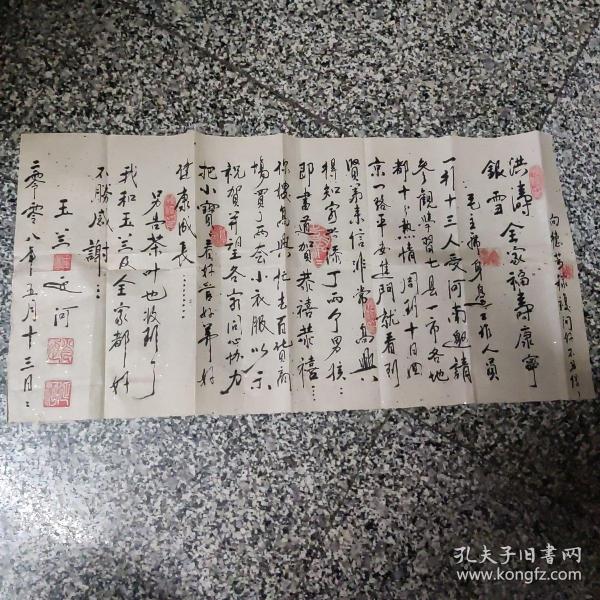 洪涛 全家福寿康宁
银雪
一行十三人受河南邀请
参观学习七县一市各地
都十分热情 周到十日回
京一路平安进门就看到
贤弟来信非常高兴
得知家添丁两个男孩…
即书道贺恭禧恭禧…
你嫂高兴忙去百货商
场买了两套小衣服以示
祝贺 望各家同心协力
把小宝看好育好养好
健康成长……
另告茶叶也收到了
我和玉兰及全家都好
不胜感谢…
玉兰
河
二零零八年五月十三日
孔夫子旧书网
www.kongfz.com